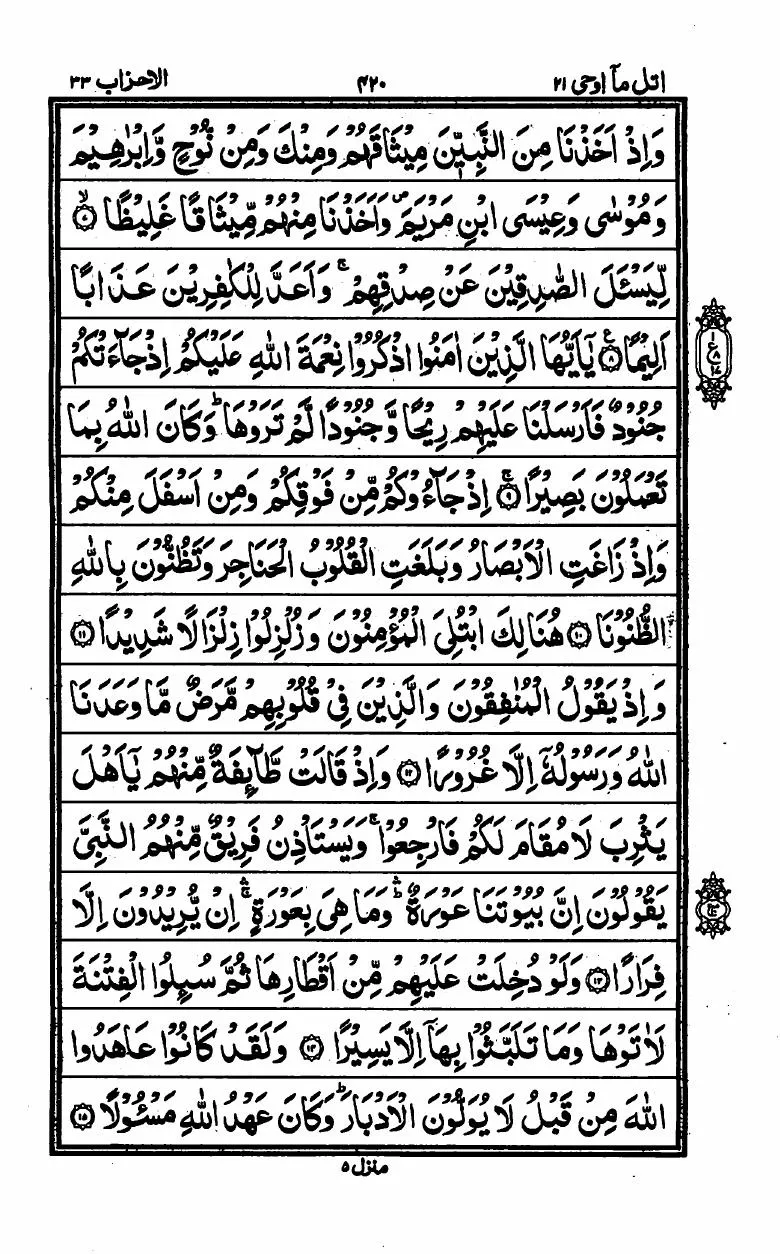 اتل مآ اوحی ۲۱ ۴۲۰ الاحزاب ۳۳
وَاِذْ اَخَذْنَا مِنَ النَّبِیّٖنَ مِیْثَاقَهُمْ وَمِنْكَ وَمِنْ نُّوْحٍ وَّاِبْرٰهِیْمَ
وَمُوْسٰی وَعِیْسَی ابْنِ مَرْیَمَ ۪ وَاَخَذْنَا مِنْهُمْ مِّیْثَاقًا غَلِیْظًا ۙ۷
لِّیَسْـَٔلَ الصّٰدِقِیْنَ عَنْ صِدْقِهِمْ ۚ وَاَعَدَّ لِلْكٰفِرِیْنَ عَذَابًا
اَلِیْمًا ۸ ع یٰۤاَیُّهَا الَّذِیْنَ اٰمَنُوا اذْكُرُوْا نِعْمَةَ اللّٰهِ عَلَیْكُمْ اِذْ جَآءَتْكُمْ
جُنُوْدٌ فَاَرْسَلْنَا عَلَیْهِمْ رِیْحًا وَّجُنُوْدًا لَّمْ تَرَوْهَا ؕ وَكَانَ اللّٰهُ بِمَا
تَعْمَلُوْنَ بَصِیْرًا ۚ۹ اِذْ جَآءُوْكُمْ مِّنْ فَوْقِكُمْ وَمِنْ اَسْفَلَ مِنْكُمْ
وَاِذْ زَاغَتِ الْاَبْصَارُ وَبَلَغَتِ الْقُلُوْبُ الْحَنَاجِرَ وَتَظُنُّوْنَ بِاللّٰهِ
الظُّنُوْنَا ۱۰ هُنَالِكَ ابْتُلِیَ الْمُؤْمِنُوْنَ وَزُلْزِلُوْا زِلْزَالًا شَدِیْدًا ۱۱
وَاِذْ یَقُوْلُ الْمُنٰفِقُوْنَ وَالَّذِیْنَ فِیْ قُلُوْبِهِمْ مَّرَضٌ مَّا وَعَدَنَا
اللّٰهُ وَرَسُوْلُهٗۤ اِلَّا غُرُوْرًا ۱۲ وَاِذْ قَالَتْ طَّآئِفَةٌ مِّنْهُمْ یٰۤاَهْلَ
یَثْرِبَ لَا مُقَامَ لَكُمْ فَارْجِعُوْا ۚ وَیَسْتَاْذِنُ فَرِیْقٌ مِّنْهُمُ النَّبِیَّ
یَقُوْلُوْنَ اِنَّ بُیُوْتَنَا عَوْرَةٌ ۛؕ وَمَا هِیَ بِعَوْرَةٍ ۛۚ اِنْ یُّرِیْدُوْنَ اِلَّا
فِرَارًا ۱۳ وَلَوْ دُخِلَتْ عَلَیْهِمْ مِّنْ اَقْطَارِهَا ثُمَّ سُىِٕلُوا الْفِتْنَةَ
لَاٰتَوْهَا وَمَا تَلَبَّثُوْا بِهَاۤ اِلَّا یَسِیْرًا ۱۴ وَلَقَدْ كَانُوْا عَاهَدُوا
اللّٰهَ مِنْ قَبْلُ لَا یُوَلُّوْنَ الْاَدْبَارَ ؕ وَكَانَ عَهْدُ اللّٰهِ مَسْـُٔوْلًا ۱۵
منزل ۵